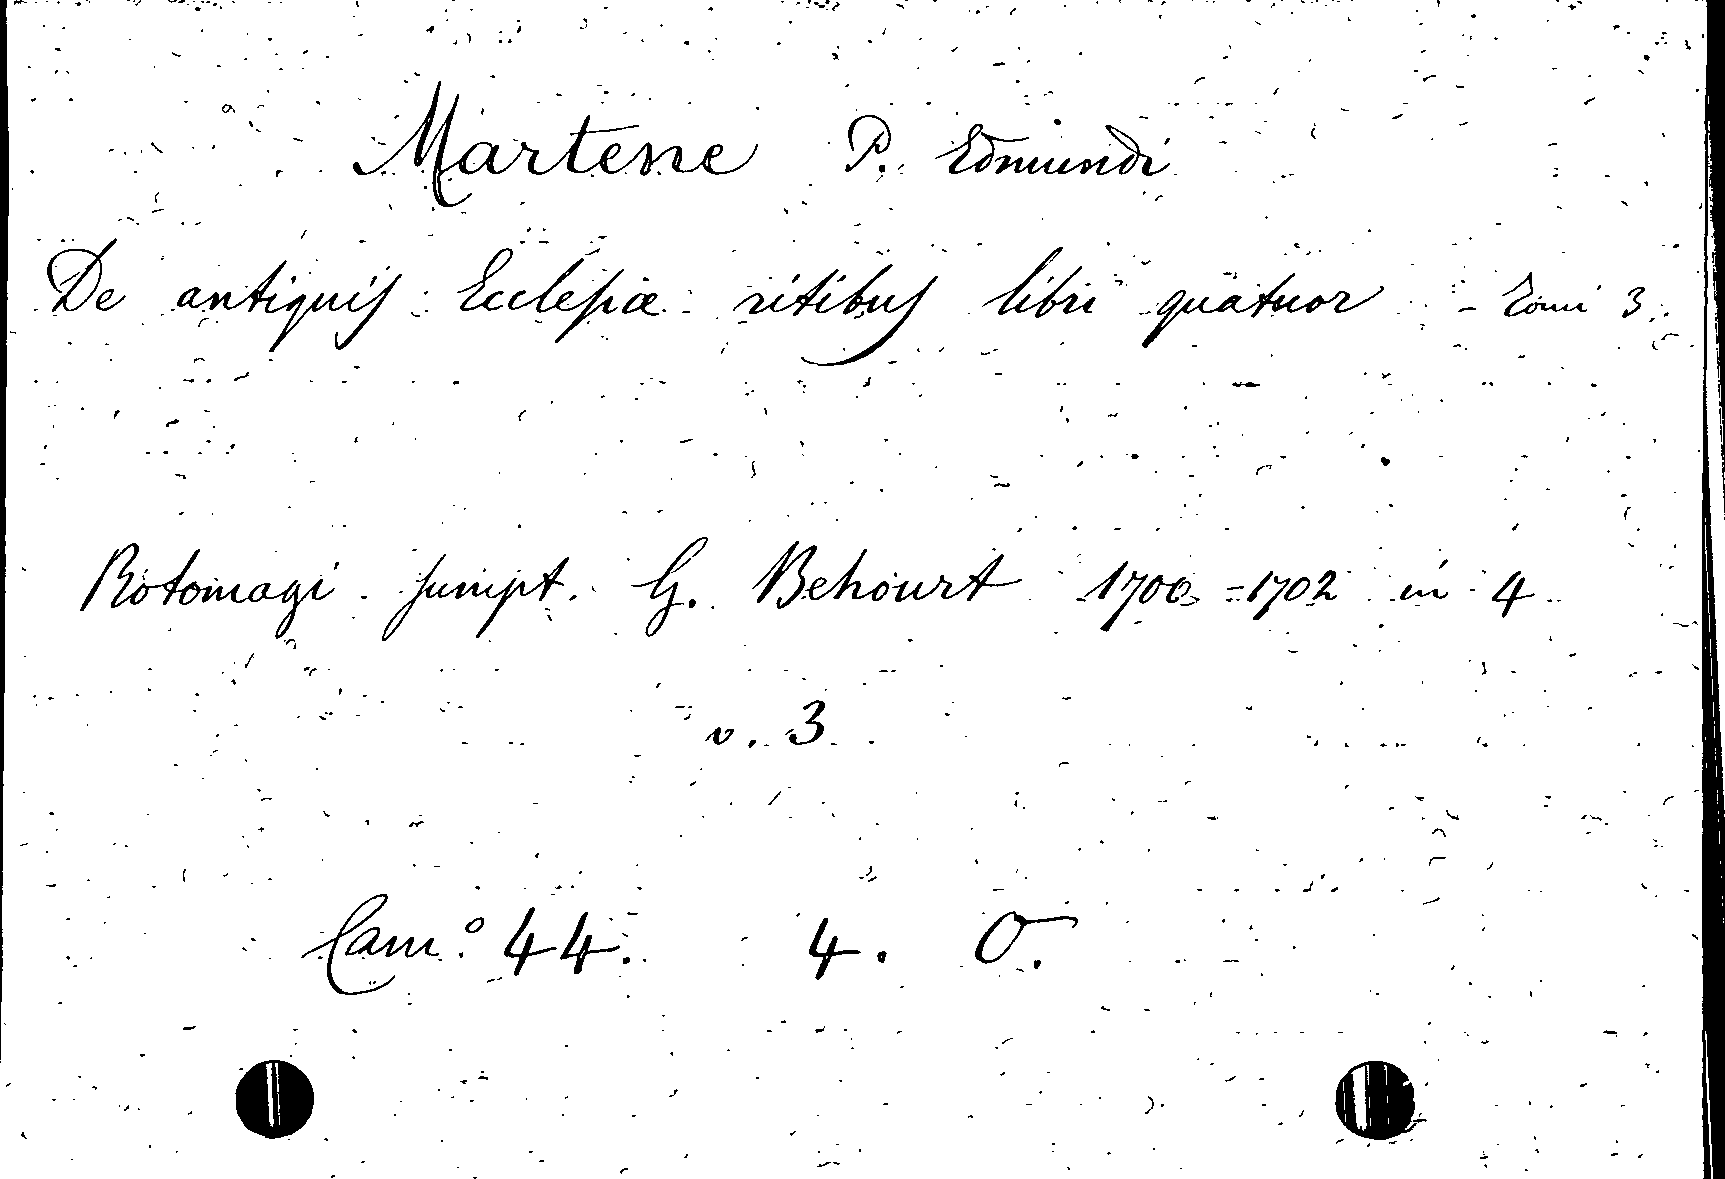 Martene P. Edmundi
De antiquis Ecclesiæ ritibus libri quatuor - Tomi 3.
Rotomagi. sumpt. G. Behourt 1700-1702 in 4
v. 3
Cam.° 44. 4. O.